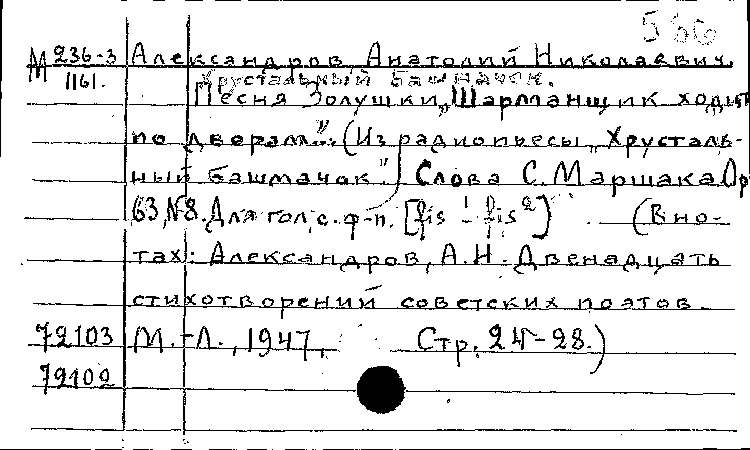 566
М 236-3 Александров, Анатолий Николаевич.
1161. Хрустальный башмачок.
Песня Золушки „Шарманщик ходит
по дворам". (Из радиопьесы „Хрусталь-
ный башмачок". Слова С. Маршака. Ор
63, №8. Для гол. с. ф-п. [fis¹ - fis²] (В но-
тах: Александров, А.Н. Двенадцать
стихотворений советских поэтов.
72103 М.-Л., 1947, Стр. 24-28.)
72102